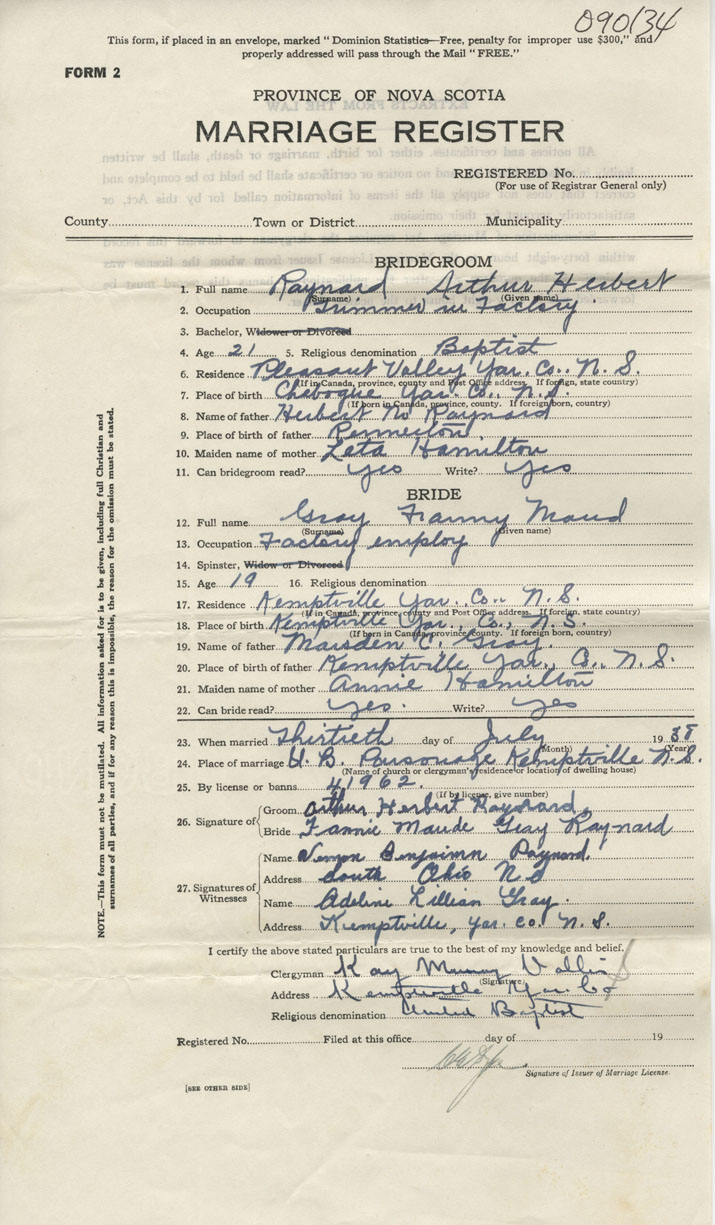 090134
This form, if placed in an envelope, marked "Dominion Statistics—Free, penalty for improper use $300," and
properly addressed will pass through the Mail "FREE."
FORM 2
PROVINCE OF NOVA SCOTIA
MARRIAGE REGISTER
REGISTERED No.
(For use of Registrar General only)
County Town or District Municipality
BRIDEGROOM
1. Full name Raynard Arthur Herbert
(Surname) (Given name)
2. Occupation Trimmer in Factory
3. Bachelor, Widower or Divorced
4. Age 21 5. Religious denomination Baptist
6. Residence Pleasant Valley Yar. Co., N. S.
(If in Canada, province, county and Post Office address. If foreign, state country)
7. Place of birth Chebogue Yar. Co., N.S.
(If born in Canada, province, county. If foreign born, country)
8. Name of father Herbert W Raynard
9. Place of birth of father
10. Maiden name of mother Leta Hamilton
11. Can bridegroom read? yes Write? yes
BRIDE
12. Full name Gray Fanny Maud
(Surname) (Given name)
13. Occupation Factory employ
14. Spinster, Widow or Divorced
15. Age 19 16. Religious denomination
17. Residence Kemptville Yar. Co., N. S.
(If in Canada, province, county and Post Office address. If foreign, state country)
18. Place of birth Kemptville Yar., Co., N. S.
(If born in Canada, province, county. If foreign born, country)
19. Name of father Marsden C. Gray.
20. Place of birth of father Kemptville Yar., Co., N. S.
21. Maiden name of mother Annie Hamilton
22. Can bride read? yes. Write? yes
23. When married Thirtieth day of July 1938
(Month) (Year)
24. Place of marriage U. B. Parsonage Kemptville N.S.
(Name of church or clergyman's residence or location of dwelling house)
25. By license or banns 41962.
(If by license, give number)
26. Signature of Groom Arthur Herbert Raynard
Bride Fannie Maude Gray Raynard
27. Signatures of Witnesses
Name Vernon Benjaimn Raynard.
Address South Ohio N S
Name Adeline Lillian Gray.
Address Kemptville, Yar. Co. N. S.
I certify the above stated particulars are true to the best of my knowledge and belief.
Clergyman Murray
(Signature)
Address Kemptville Yar. Co
Religious denomination United Baptist
Registered No. Filed at this office day of 19
Signature of Issuer of Marriage License.
[SEE OTHER SIDE]
NOTE.—This form must not be mutilated. All information asked for is to be given, including full Christian and
surnames of all parties, and if for any reason this is impossible, the reason for the omission must be stated.